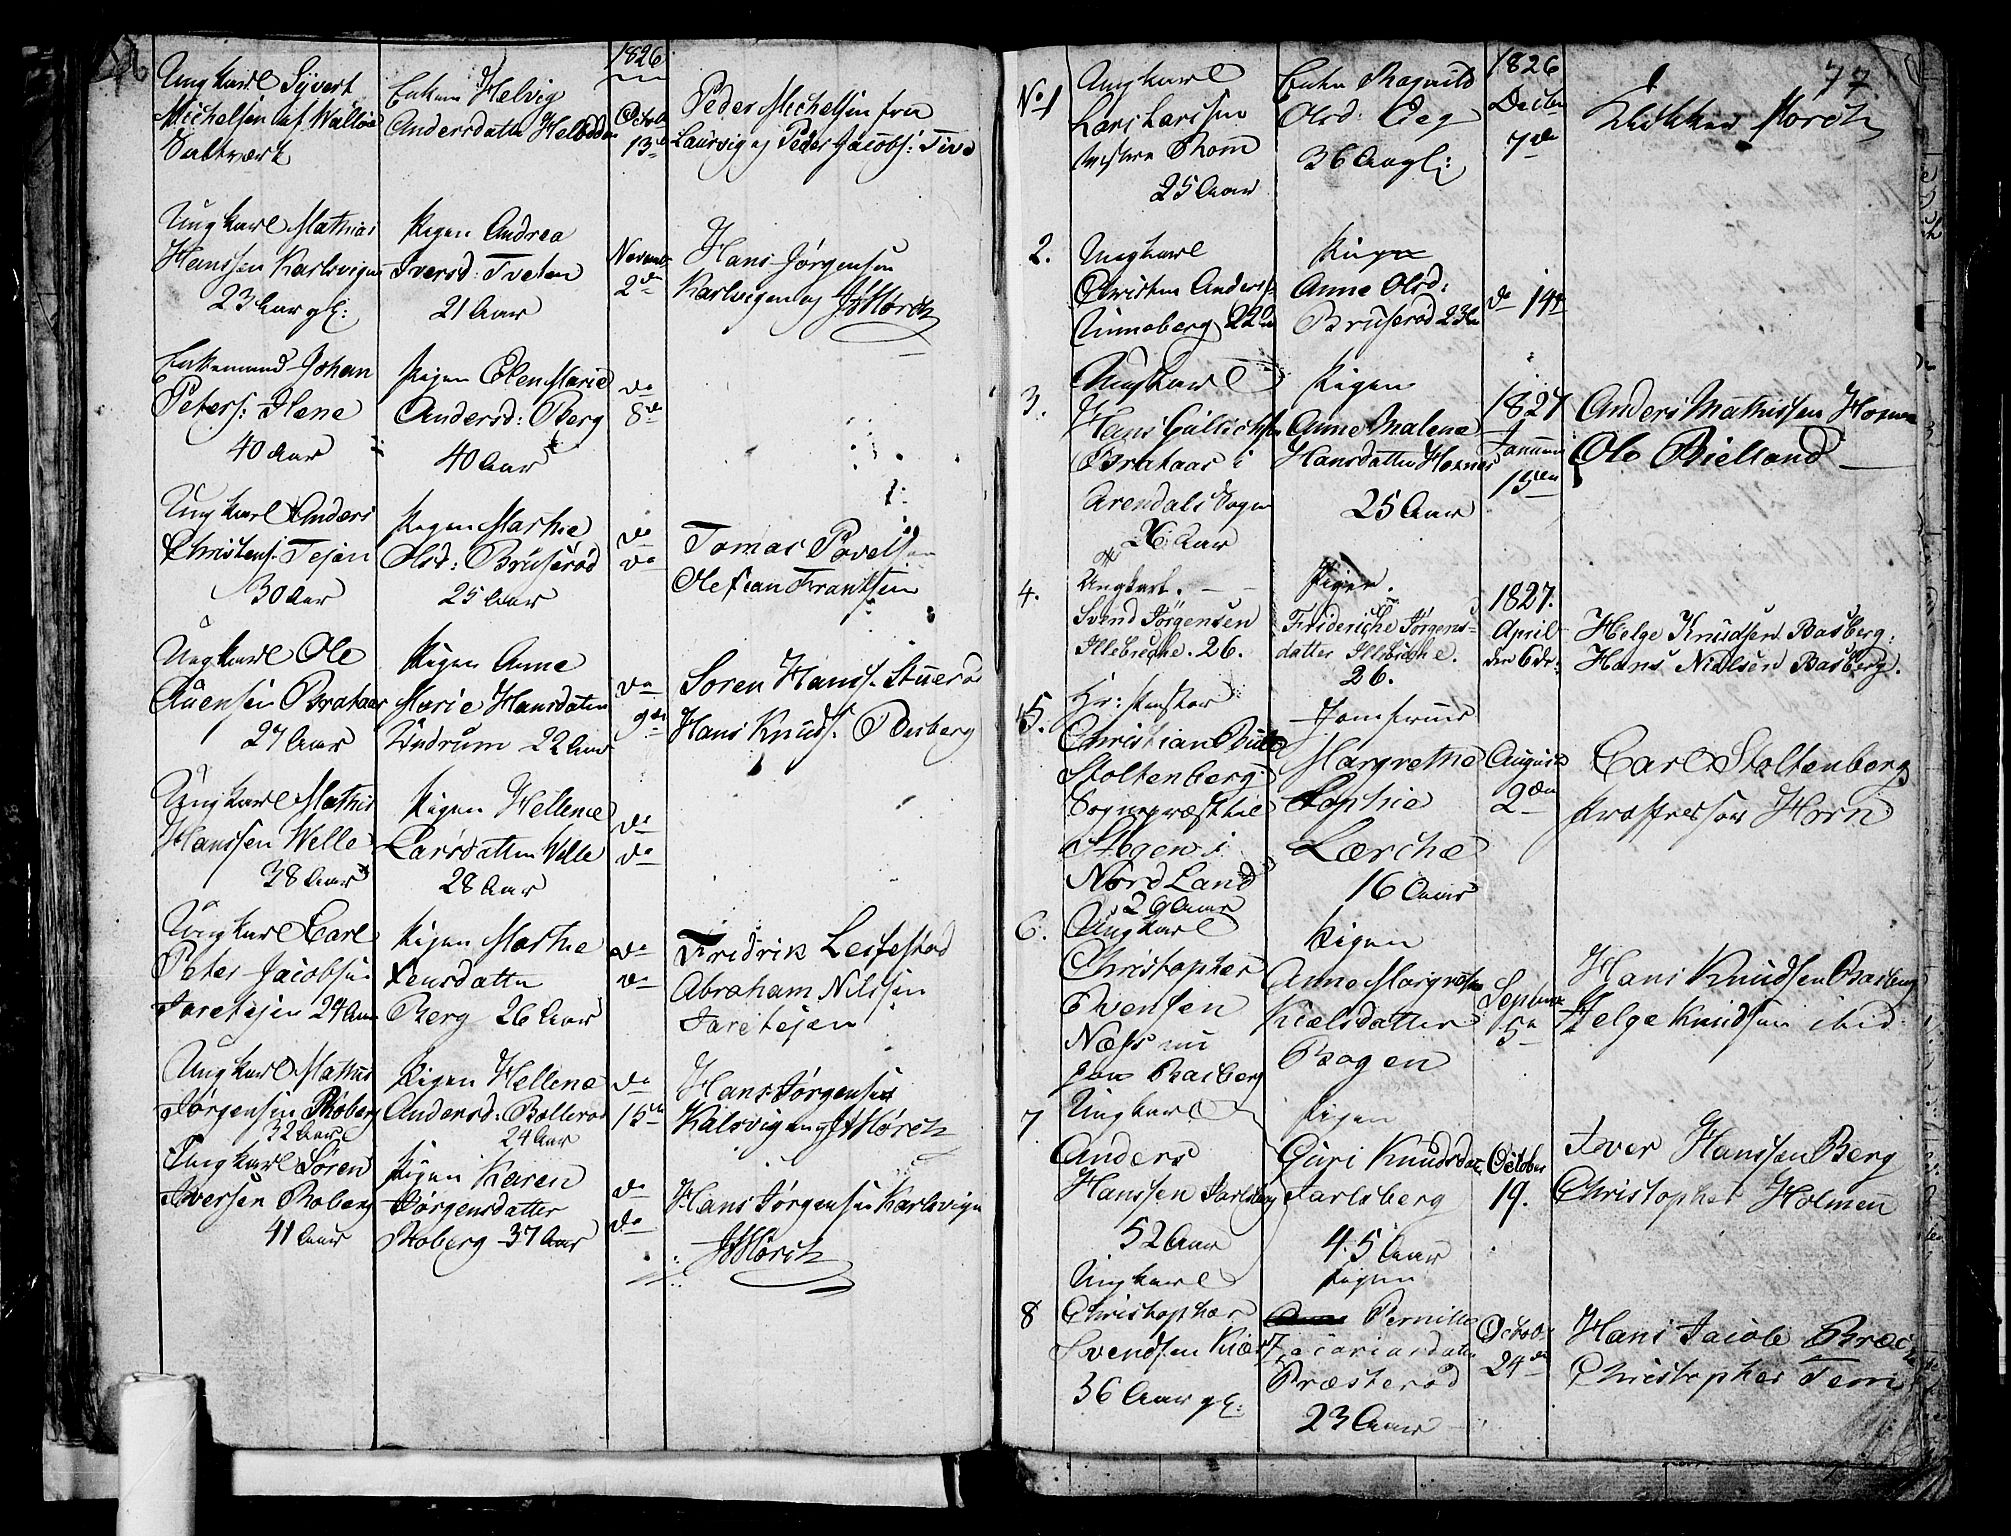 1826
Ungkarl Syvert
Michelsen af Walløe
Saltværk
Enken Helvig
Andersdatter
Octob
13de
Peder Michelsen fra
Laurvig og Peder Jacobs:
Ungkarl Mathias
Hanssen Karlsvigen
23 Aar gl:
Pigen Andrea
Iversd: Tveten
21 Aar
Novemb
2de
Hans Jørgensen
Karlsvigen og JMørch
Enkemand Johan
Peters: Ilene
40 Aar
Pigen Elen Marie
Andersd: Berg
40 Aar
do
8de
Ungkarl Anders
Christens. Tejen
30 Aar
Pigen Marthe
Olsd: Bruserød
25 Aar
do
do
Tomas Povelsen
Ole Frantsen
Ungkarl Ole
Auensen Brataas
27 Aar
Pigen Anne
Marie Hansdatter
Lindrum 22 Aar
do
9de
Soren Hanss. Stuerød
Hans Knuds. Basberg
Ungkarl Mathis
Hanssen Welle
38 Aar
Pigen Hellene
Larsdatter Welle
28 Aar
do
do
Ungkarl Carl
Peter Jacobsen
Faretejen 24 Aar
Pigen Marthe
Jensdatter
Berg 26 Aar
do
do
Fridrik Leifestad
Abraham Nilssen
Faretejen
Ungkarl Mathis
Jørgensen Roberg
32 Aar
Pigen Hellene
Andersd: Bollerød
24 Aar
do
15de
Hans Jørgensen
Kalsvigen og JMørch
Ungkarl Søren
Iversen Roberg
41 Aar
Pigen Karen
Jørgensdatter
Roberg 37 Aar
do
do
Hans Jørgensen Karlsvigen
JMørch
77.
No 1
Ungkarl
Lars Larssen
vestre Rom
25 Aar
Enken Ragnild
Olsd: Eeg
36 Aar gl:
1826
Decbr
7de
Klokker Mørch
2.
Ungkarl
Christen Anders:
Unneberg 22
Pigen
Anne Olsd:
Bruserød 23
do 14de
3.
Ungkarl
Hans Gulichsen
Brataas i
Arendals Sogn
26 Aar
Pigen
Anne Malene
Hansdatter Hornes
25 Aar
1827
Januari
15den
Anders Mathissen Hornes
Ole Bielland
4.
Ungkarl.
Svend Jørgensen
Illebreche. 26.
Pigen.
Frideriche Jørgens-
datter Illebreche.
26.
1827.
April
den 6de:
Helge Knudsen Basberg:
Hans Nielsen Basberg.
5.
Hr: Pastor
Christian
Stoltenberg
Sognepræst til
Stegen i
Nordland
29 Aar
Jomfrue
Margrethe
Sophie
Lærche
16 Aar
August
2den
Carl Stoltenberg
Proffessor Horn
6.
Ungkarl
Christopher
Evensen
Næss nu
paa Basberg
Pigen
Anne Margrethe
Kielsdatter
Bogen
Septbr
5
Hans Knudsen Basberg
Helge Knudsen ibid
7
Ungkarl
Anders
Hanssen Jarlsberg
52 Aar
Pigen
Guri Knudsdat.
Jarlsberg
45 Aar
October
19.
Iver Hanssen Berg
Christopher Holmen
8
Ungkarl
Christopher
Svendsen Kiær
36 Aar gl:
Pigen
Pernille
Zacariasdatter
Præsterød
23 Aar
Octobr
24de
Hans Jacob
Christopher